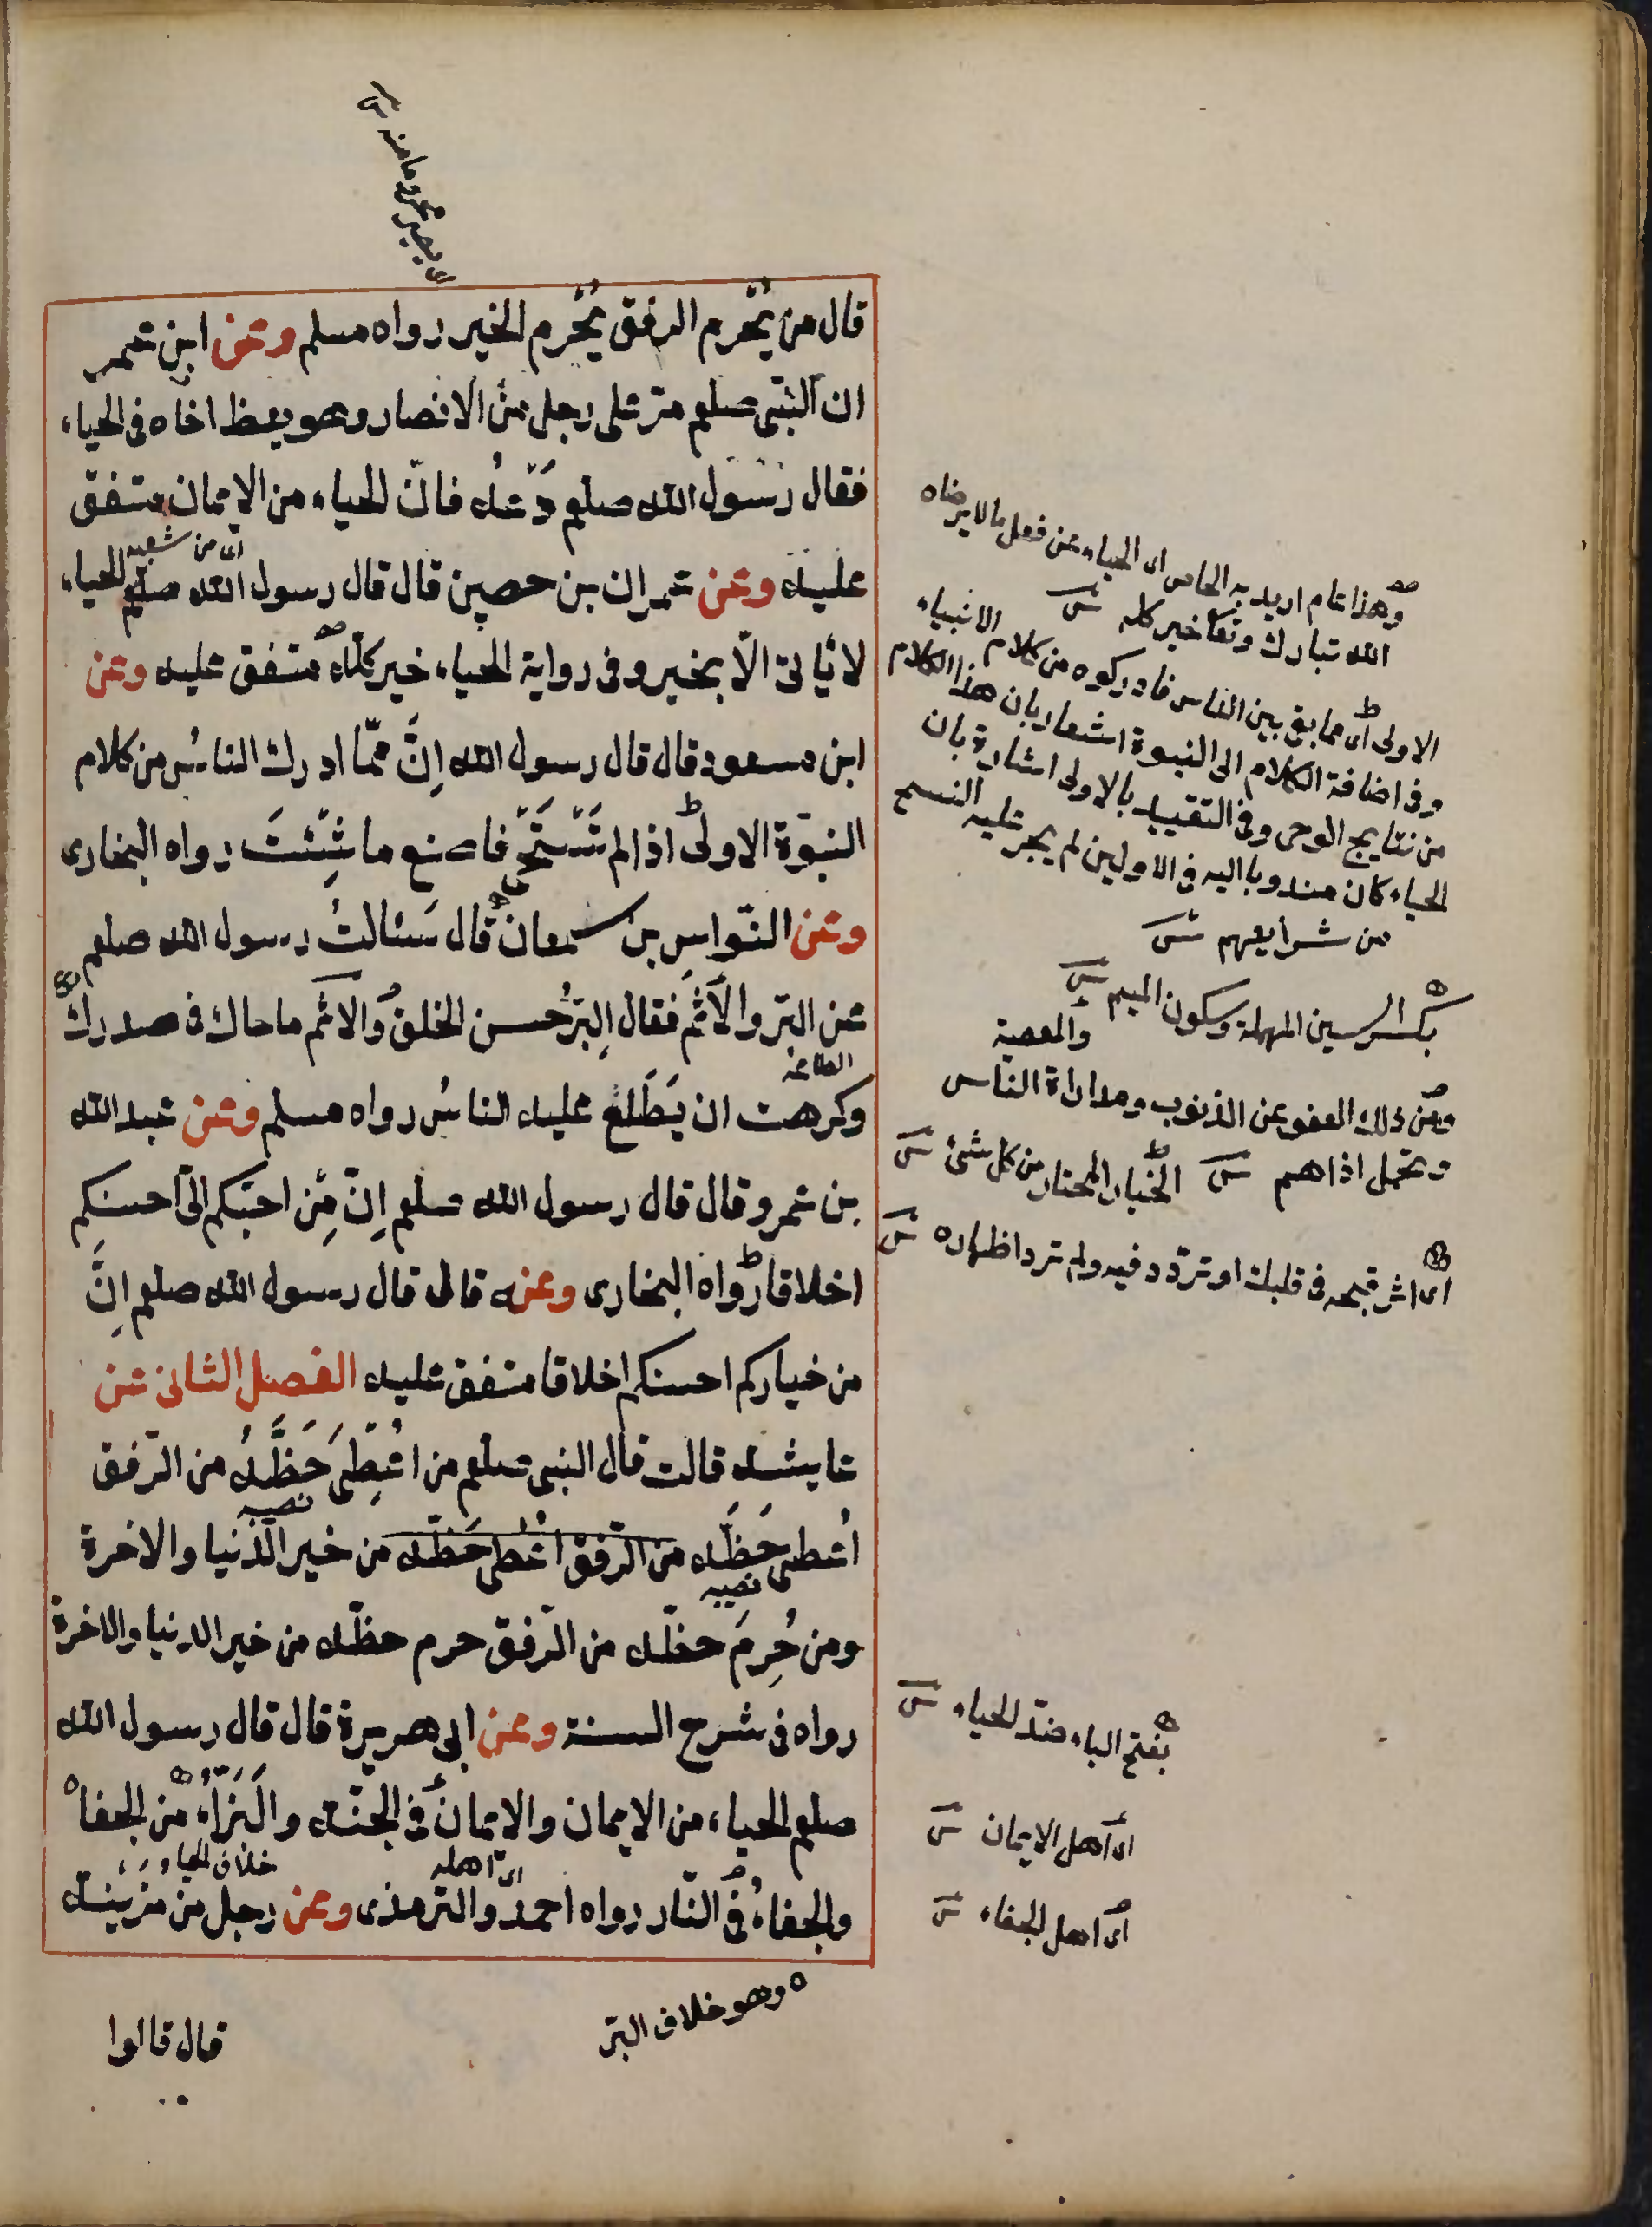 قال من يُحْرم الرفق يُحْرم الخير رواه مسلم وعن ابن عمر
ان النبى صلعم مر على رجل من الانصار وهو يعظ اخاه فى الحياء
فقال رسول الله صلعم دَعْه فانّ الحياء من الايمان متفق
اى من شعبه
عليه وعن عمران بن حصين قال قال رسول الله صلعم الحياء
لا ياتى الّا بخير وفى رواية الحياء خير كلّه متفق عليه وعن
ابن مسعود قال قال رسول الله اِنَّ ممّا ادرك الناسُ من كلام
النبوّة الاولى اذا لم تَسْتَحْىِ فاصنع ما شِئتَ رواه البخارى
وعن النوّاس بن سمعان قال سَئالتُ رسول الله صلعم
عن البرّ والاثم فقال اِلبرُّ حُسن الخلق والاثم ما حاك فى صدرك
الطاعة
وكرهت ان يَطَّلع عليه الناسُ رواه مسلم وعن عبد الله
بن عمرو قال قال رسول الله صلعم اِنّ مِن احبّكم الىّ احسنكم
اخلاقا رواه البخارى وعنه قال قال رسول الله صلعم اِنَّ
من خياركم احسنكم اخلاقا متفق عليه الفصل الثانى عن
عايشه قالت قال النبى صلعم من اُعْطِىَ حَظَّهُ من الرّفق
نصيبه
اُعطى حَظَّه من الرّفق اُعْطى حَظّه من خير الدّنيا والاخرة
نصيبه
ومن حُرِمَ حظّه من الرّفق حرم حظّه من خير الدنيا والاخرة
رواه فى شرح السنة وعن ابى هريرة قال قال رسول الله
صلعم الحياء من الايمان والايمان فى الجنّه والبَذَاءُ من الجفا
اى اهله
خلاف الحياء
والجفاءُ فى النّار رواه احمد والترمذى وعن رجل من مُزَيْنَه
وهو خلاف البرّ
قال قالوا
وهذا عام اريد به الخاص اى الحياء عن فعل ما لا يرضاه
الله تبارك وتعا خير كله
الاولى اى مما بقى بين الناس فادركوه من كلام الانبياء
وفى اضافة الكلام الى النبوة اشعار بان هذا الكلام
من نتايج الوحى وفى التقييد بالاولى اشارة بان
الحياء كان مندوبا اليه فى الاولين لم يجر عليه النسخ
من شرايعهم
بكسر السين المهملة وسكون الميم
والمعصية
ومن ذلك العفو عن الذنوب ومداراة الناس
وتحمل اذاهم
الخيار المختار من كل شئ
اى اثر قبحه فى قلبك او تردّد فيه ولم ترد اظهاره
بفتح الباء ضدّ الحياء
اى اهل الايمان
اى اهل الجفاء